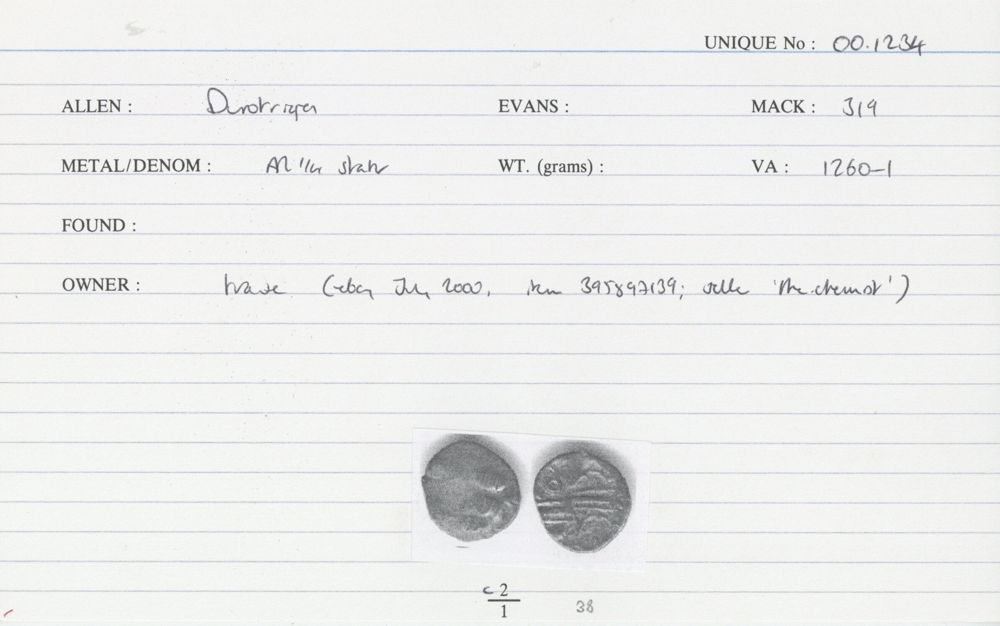 UNIQUE No : 00.1234
ALLEN : Durotriges EVANS : MACK : 319
METAL/DENOM : AR 1/4 stater WT. (grams) : VA : 1260-1
FOUND :
OWNER : trade (ebay July 2000, item 395897139; seller 'the.chemist')
c 2
1
38